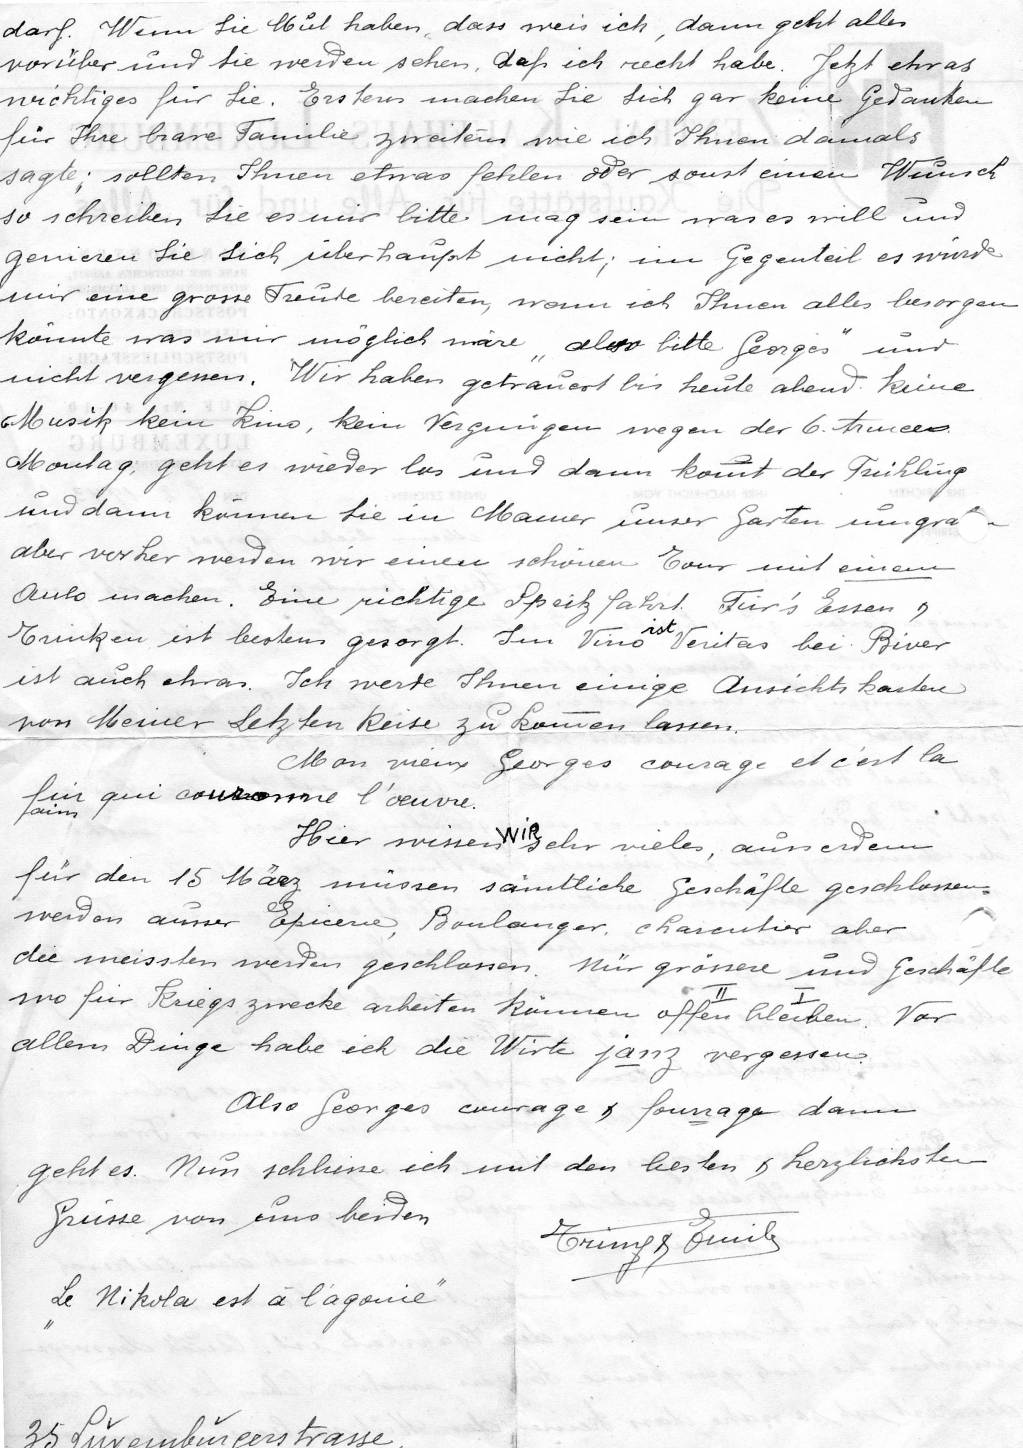 darf. Wenn Sie Mut haben, dass weis ich, dann geht alles
vorüber und Sie werden sehen, daß ich recht habe. Jetzt etwas
wichtiges für Sie. Erstens machen Sie sich gar keine Gedanken
für Ihre brave Familie zweitens wie ich Ihnen damals
sagte; sollten Ihnen etwas fehlen oder sonst einen Wunsch
so schreiben Sie es mir bitte mag sein was es will und
genieren Sie sich überhaupt nicht; im Gegenteil es würde
mir eine grosse Freude bereiten, wenn ich Ihnen alles besorgen
könnte was mir möglich wäre „also bitte Georges" und
nicht vergessen. Wir haben getrauert bis heute abend keine
Musik kein Kino, kein Vergnügen wegen der 6. Armee.
Montag, geht es wieder los und dann kommt der Frühling
und dann können Sie in Mamer unser Garten umgra-
aber vorher werden wir einen schönen Tour mit einem
Auto machen. Eine richtige Spritzfahrt. Für's Essen &
Trinken ist bestens gesorgt. Im Vino ist Veritas bei Biver
ist auch etwas. Ich werde Ihnen einige Ansichtskarten
von Meiner Letzten Reise zu kommen lassen.
Mon vieux Georges courage et c'est la
fin qui couronne l'oeuvre.
faim
Hier wissen WIR sehr vieles, ausserdem
für den 15 März müssen sämtliche Geschäfte geschlossen
werden ausser Epicerie, Boulanger, charcutier aber
die meissten werden geschlossen. Nur grössere und Geschäfte
wo für Kriegszwecke arbeiten können offen bleiben. Vor
II I
allem Dinge habe ich die Wirte janz vergessen.
Also Georges courage & fourrage dann
geht es. Nun schliesse ich mit den besten & herzlichsten
Grüsse von uns beiden
& Emile
„Le Nikola est à l'agonie"
35 Luxemburgerstrasse.